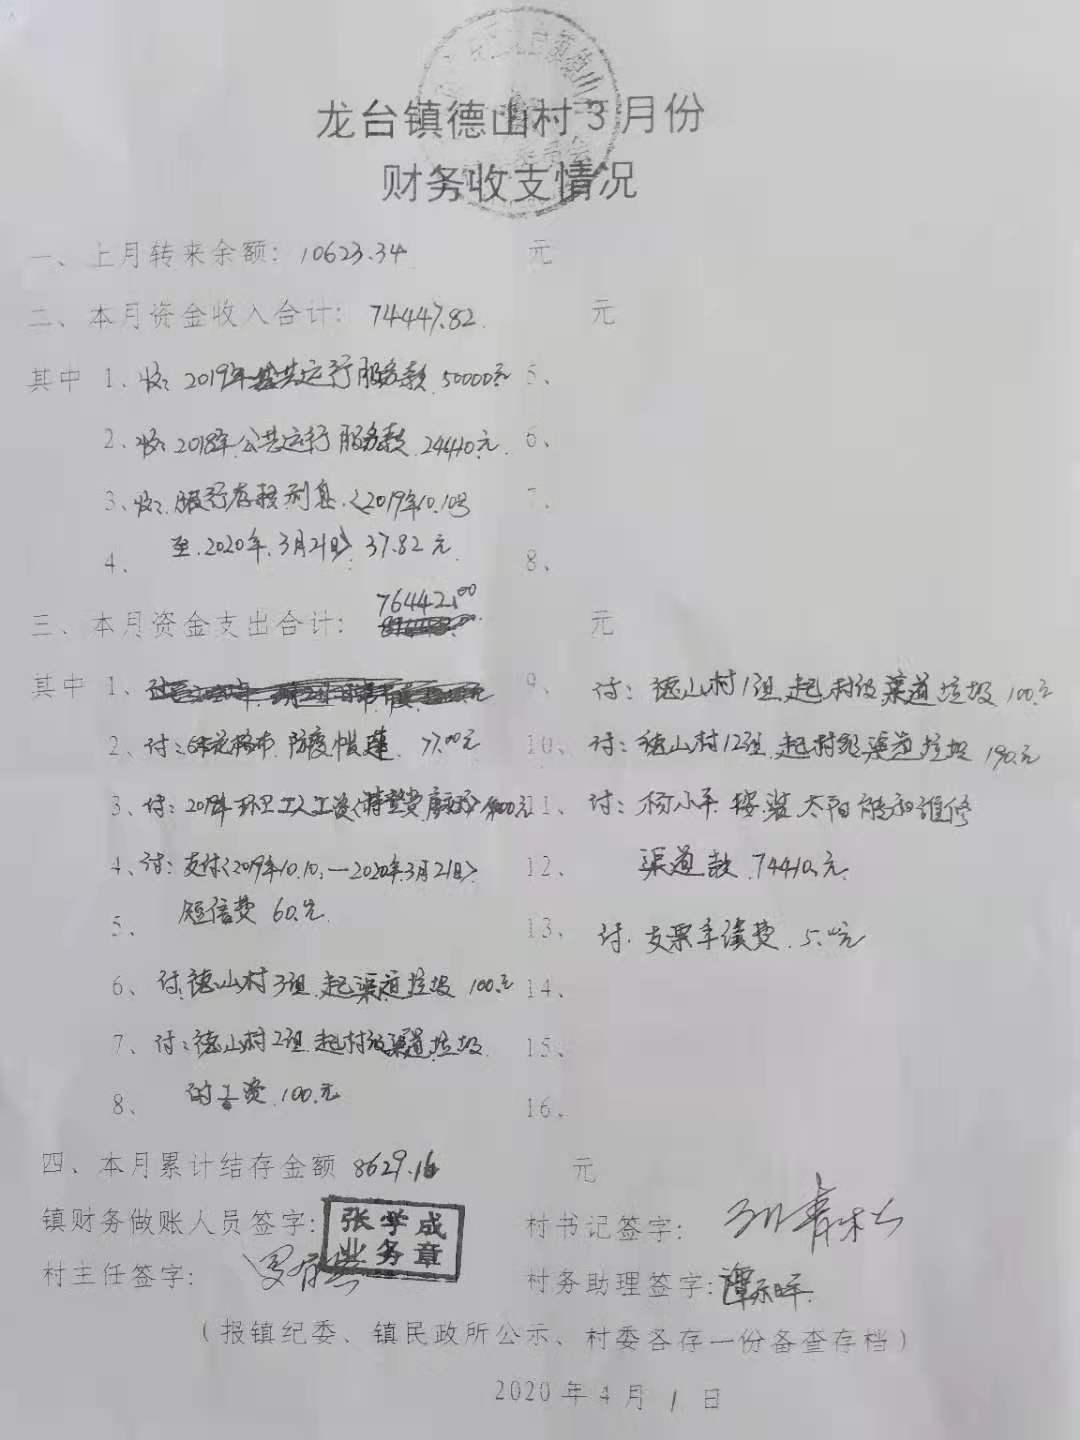 龙台镇德山村3月份
财务收支情况
一、上月转来余额：10623.34 元
二、本月资金收入合计：74447.82 元
其中 1、收：2019年公共运行服务款 50000元 5、
2、收：2018年公共运行服务款 24410元 6、
3、收：银行存款利息〈2019年10.10号 7、
至2020年3月21日〉37.82元
4、 8、
76442.00
三、本月资金支出合计： 元
其中 1、 9、付：德山村1组起村级渠道垃圾100元
2、付：花格布防疫帐蓬 77.00元 10、付：德山村12组起村级渠道垃圾190元
3、付：环卫工人工资 11、付：杨小平按装太阳能和维修
4、付：支付〈2019年10.10.—2020年3月21日〉 12、渠道款74410元
5、短信费60元 13、付：支票手续费5.00元
6、付：德山村3组起渠道垃圾100元 14、
7、付：德山村2组起村级渠道垃圾 15、
8、的工资100元 16、
四、本月累计结存金额 8629.16 元
镇财务做账人员签字： 张学成 业务章 村书记签字：
村主任签字： 村务助理签字：
（报镇纪委、镇民政所公示、村委各存一份备查存档）
2020年4月1日